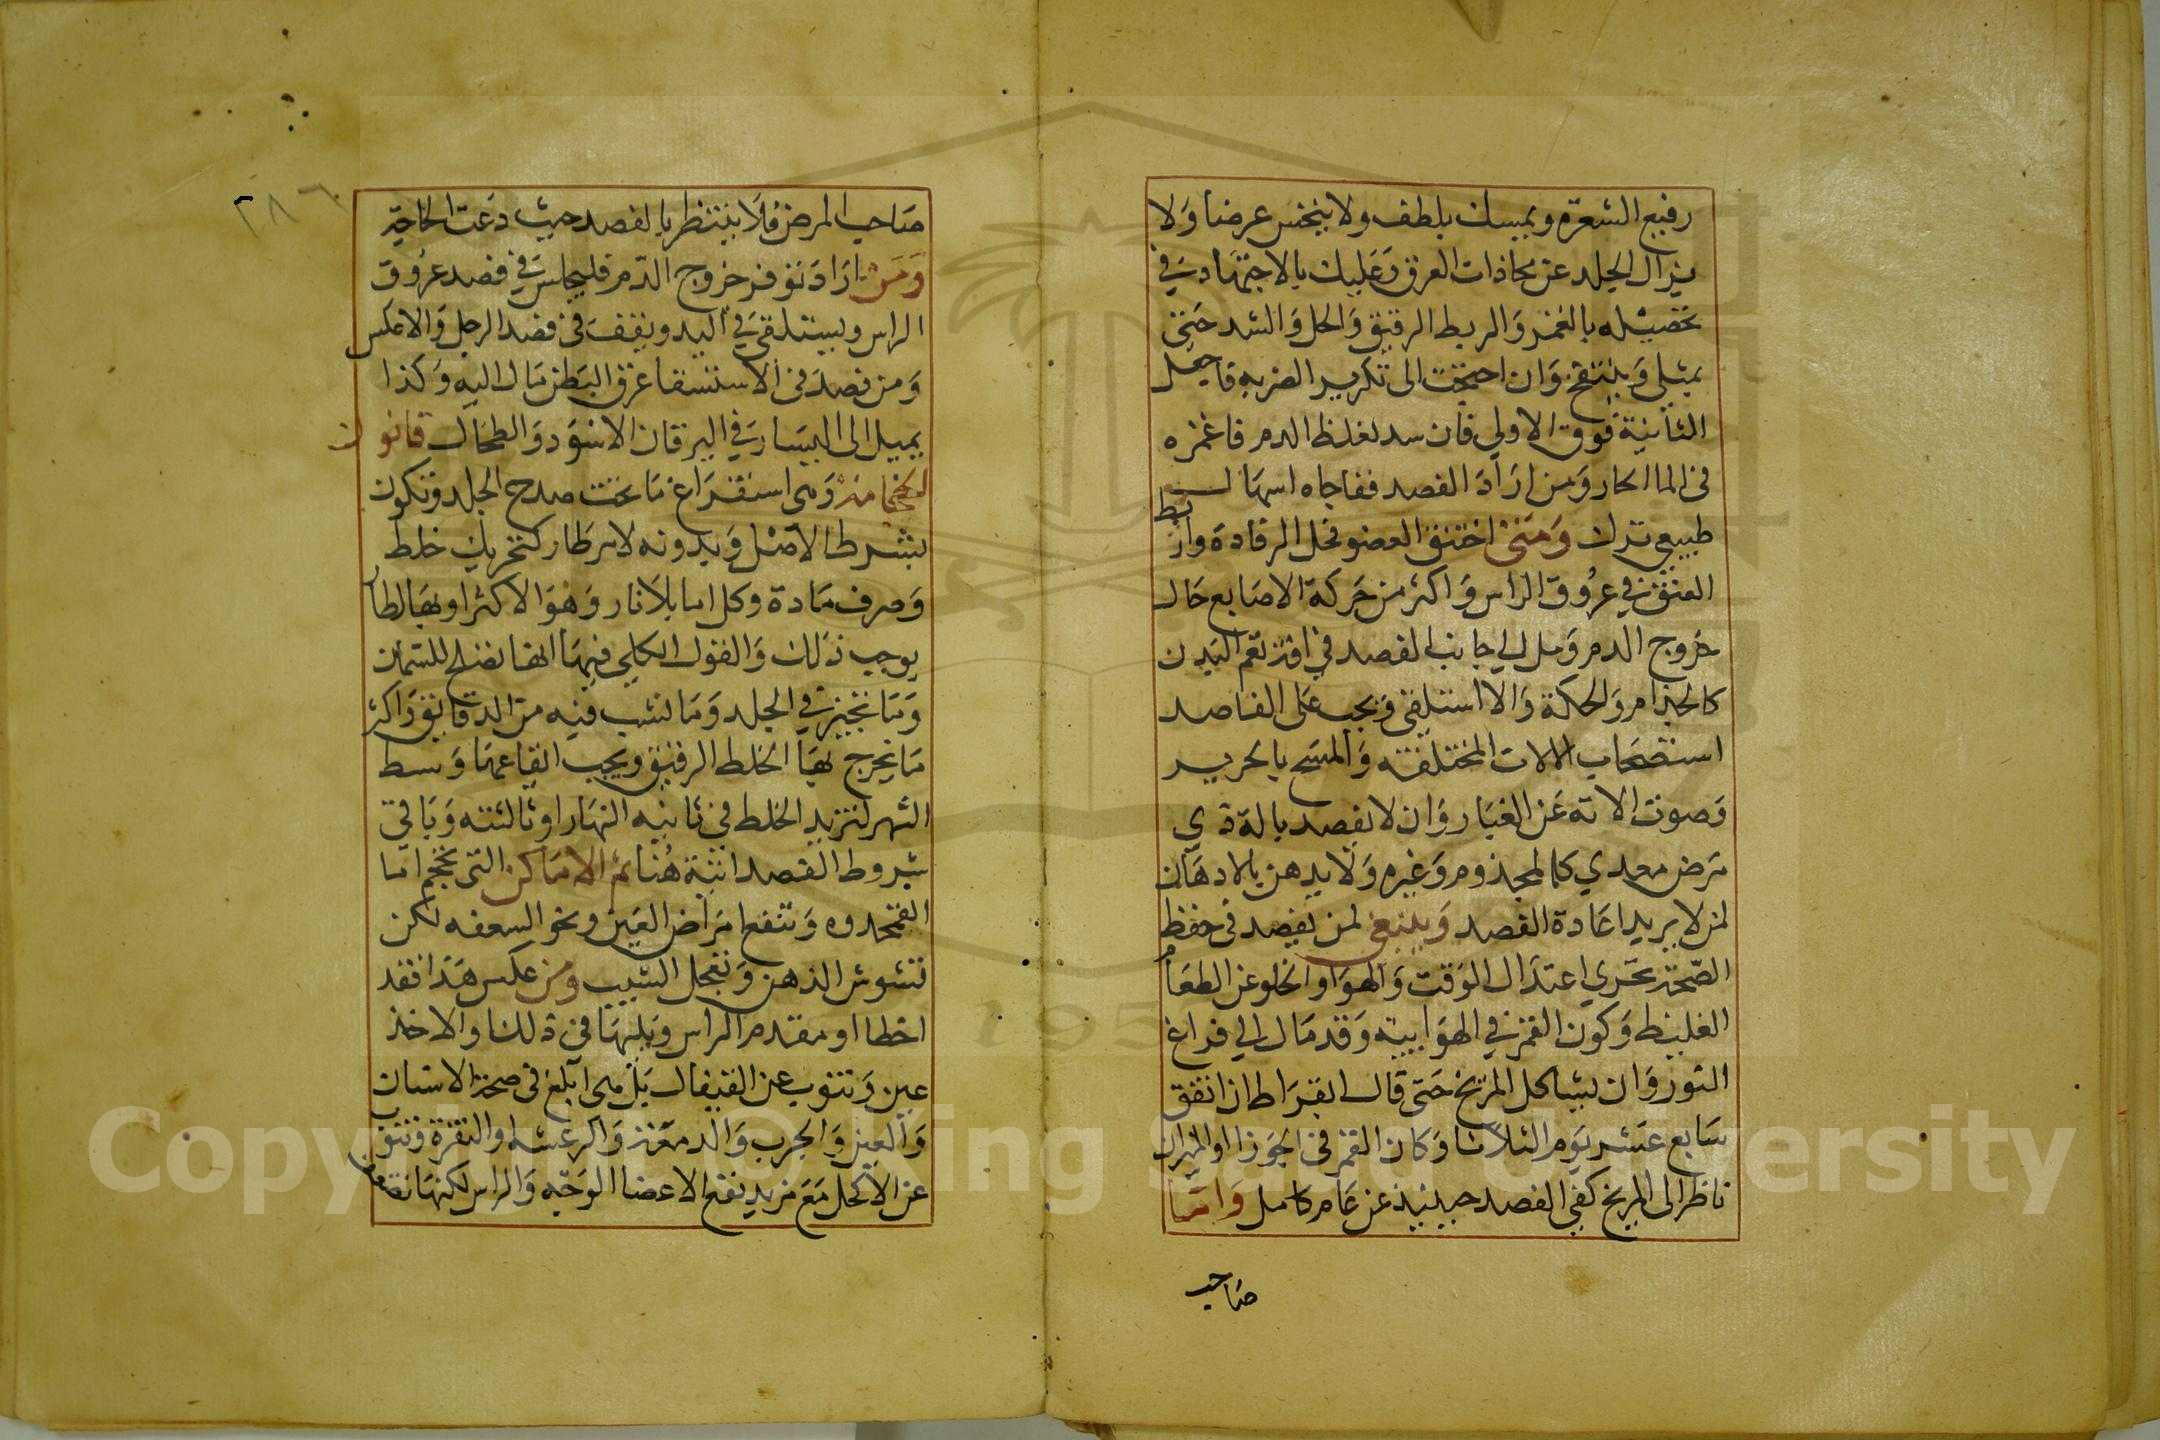 رفيع الشعرة ويمسك بلطف ولا ينخس عرضا ولا
يزال الجلد عن محاذات العرق وعليك بالاجتهاد في
تحصيله بالغمز والربط الرقيق والحل والشد حتى
يمتلي وينتفخ وان احتجت الى تكرير الضربه فاجعل
الثانية فوق الاولي فان سد لغلظ الدم فاغمزه
في الما الحار ومن اراد الفصد ففاجاه اسهال
طبيعي ترك ومتى اختنق العضو فحل الرفادة واربط
العنق في عروق الراس واكثر من حركة الاصابع حال
خروج الدم ومل الي جانب الفصد في افة تعم البدن
كالجذام والحكة والا استلقي ويجب على الفاصد
استصحاب الالات المختلفة والمسح بالحرير
وصونت الاته عن الغبار وان لا يفصد بالة ذي
مرض معدي كالمجذوم وغيره ولا يدهن بالادهان
لمن لا يريد اعادة الفصد وينبغي لمن يفصد في حفظ
الصحة تحري اعتدال الوقت والهوا والخلو عن الطعام
الغليظ وكون القمر في الهوابية وقد مال الي فراغ
النور وان يشاكل المريخ حتى قال ابقراط ان اتفق
سابع عشر يوم الثلاثا وكان القمر في الجوزا او الميزان
ناظر الى المريخ كفى الفصد حينيذ عن عام كامل واما
صاحب
٢٨٦
صاحب المرض فلا ينتظر بالفصد حيث دعت الحاجة
ومن اراد توفر خروج الدم فليجلس في فصد عروق
الراس ويستلقي في اليد ويقف في فصد الرجل والا مكس
ومن فصد في الاستسقا عرق البطن مال اليه وكذا
يميل الى اليسار في اليرقان الاسود والطحال قانون
الحجامة وهى استفراغ ما تحت صدح الجلد وتكون
بشرط الاصل وبدونه لامر طار كتحريك خلط
وصرف مادة وكل اما بلا نار وهو الاكثر او بها لطار
يوجب ذلك والقول الكلي فيها انها تصلح للسمان
وما تحيز في الجلد وما نشب فيه من الدقايق واكثر
ما يخرج بها الخلط الرقيق ويجب ايقاعها وسط
الشهر لتزيد الخلط في ثانيه النهار او ثالثته وباقي
شروط الفصد اتية هنا ثم الاماكن التى تحجم اما
القمحدوه وتنفع امراض العين ونحو السعفه لكن
تشوش الذهن وتعجل الشيب ومن عكس هذا فقد
اخطا او مقدم الراس ويليها في ذلك والاخذ
عين وتنوب عن القيفال بل هى ابلغ في صحة الاسنان
والعين والجرب والدمعة والرعشه والنقرة وتنوب
عن الاكحل مع مزيد نفع الاعضا الوجه والراس لكنها